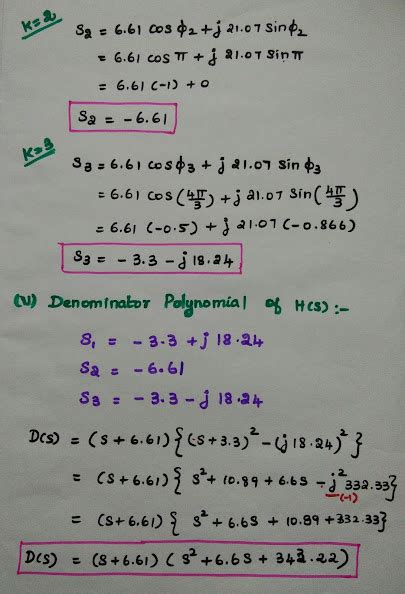 K=2
S₂ = 6.61 cos ϕ₂ + j 21.07 sin ϕ₂
= 6.61 cos π + j 21.07 sin π
= 6.61 (-1) + 0
S₂ = -6.61
K=3
S₃ = 6.61 cos ϕ₃ + j 21.07 sin ϕ₃
= 6.61 cos (4π/3) + j 21.07 sin (4π/3)
= 6.61 (-0.5) + j 21.07 (-0.866)
S₃ = -3.3 - j 18.24
(v) Denominator Polynomial of H(s) :-
S₁ = -3.3 + j 18.24
S₂ = -6.61
S₃ = -3.3 - j 18.24
D(s) = (s + 6.61) {(s + 3.3)² - (j 18.24)²}
= (s + 6.61) { s² + 10.89 + 6.6s - j² 332.33}
(-1)
= (s + 6.61) { s² + 6.6s + 10.89 + 332.33}
D(s) = (s + 6.61) (s² + 6.6s + 343.22)